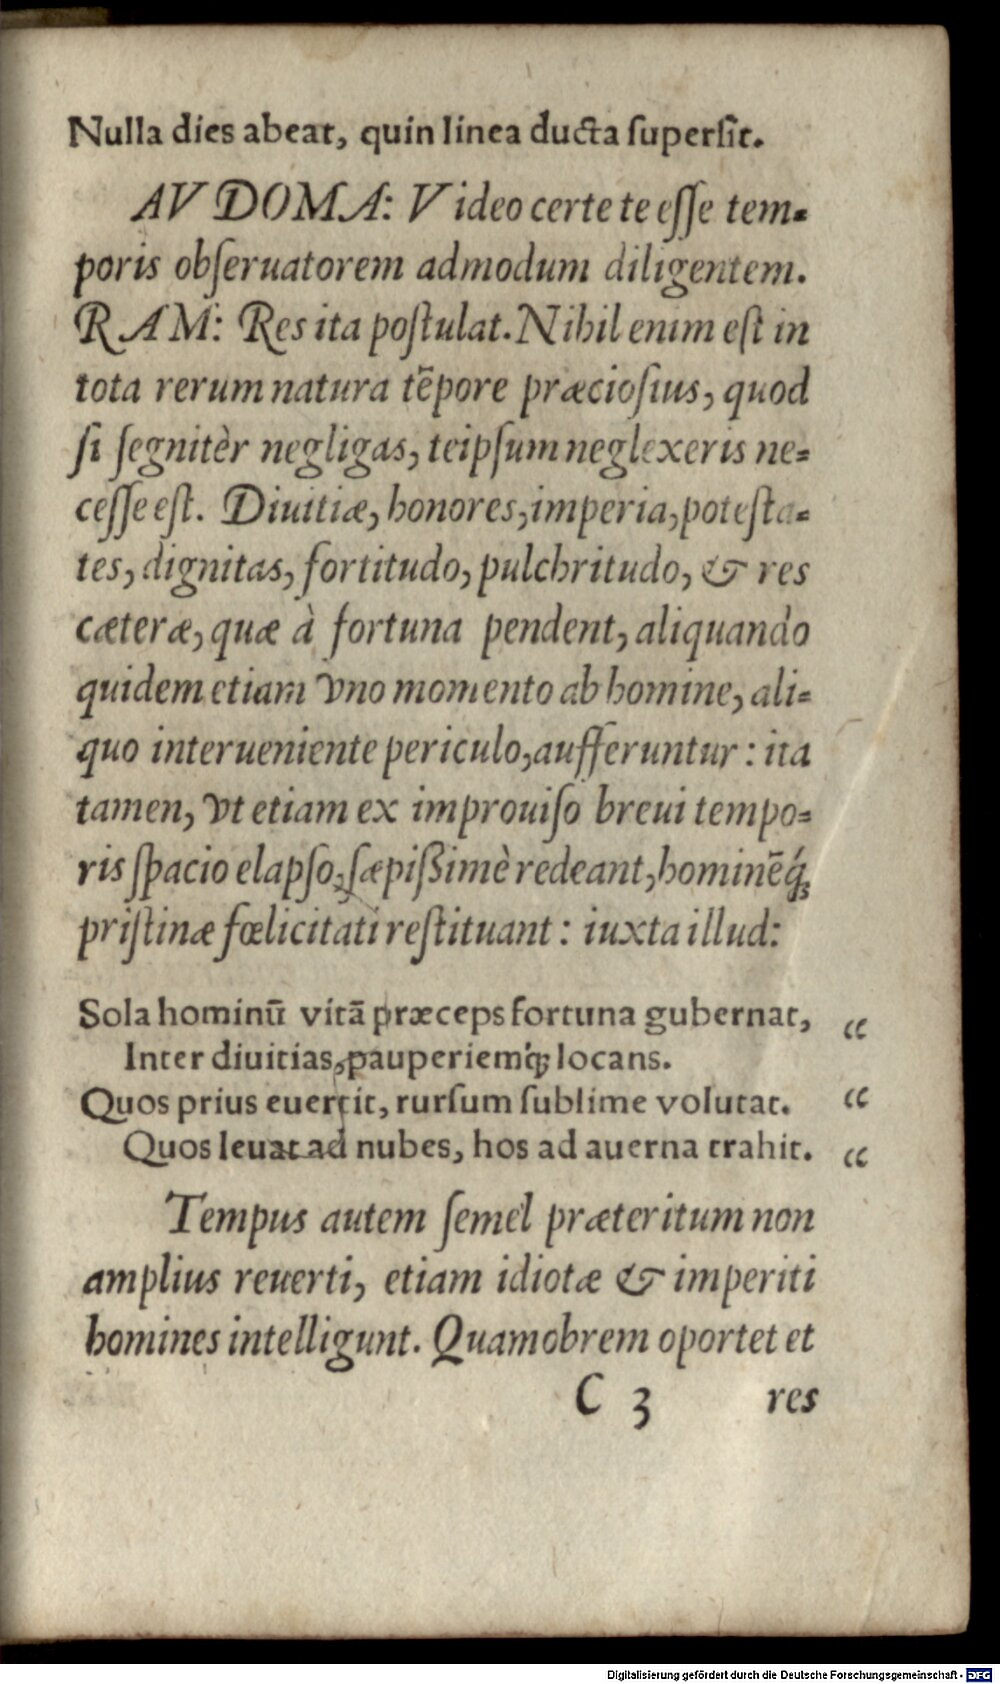 Nulla dies abeat, quin linea ducta supersit.
AVDOMA: Video certe te esse tem-
poris obseruatorem admodum diligentem.
RAM: Res ita postulat. Nihil enim est in
tota rerum natura tēpore præciosius, quod
si segnitèr negligas, teipsum neglexeris ne-
cesse est. Diuitiæ, honores, imperia, potesta-
tes, dignitas, fortitudo, pulchritudo, & res
cæteræ, quæ à fortuna pendent, aliquando
quidem etiam vno momento ab homine, ali-
quo interueniente periculo, aufferuntur: ita
tamen, vt etiam ex improuiso breui tempo-
ris spacio elapso, sæpißimè redeant, hominēq́;
pristinæ fœlicitati restituant: iuxta illud:
Sola hominū vitā præceps fortuna gubernat, “
Inter diuitias, pauperiemq́; locans.
Quos prius euertit, rursum sublime volutat. “
Quos leuat ad nubes, hos ad auerna trahit. “
Tempus autem semel præteritum non
amplius reuerti, etiam idiotæ & imperiti
homines intelligunt. Quamobrem oportet et
C 3 res
Digitalisierung gefördert durch die Deutsche Forschungsgemeinschaft - DFG